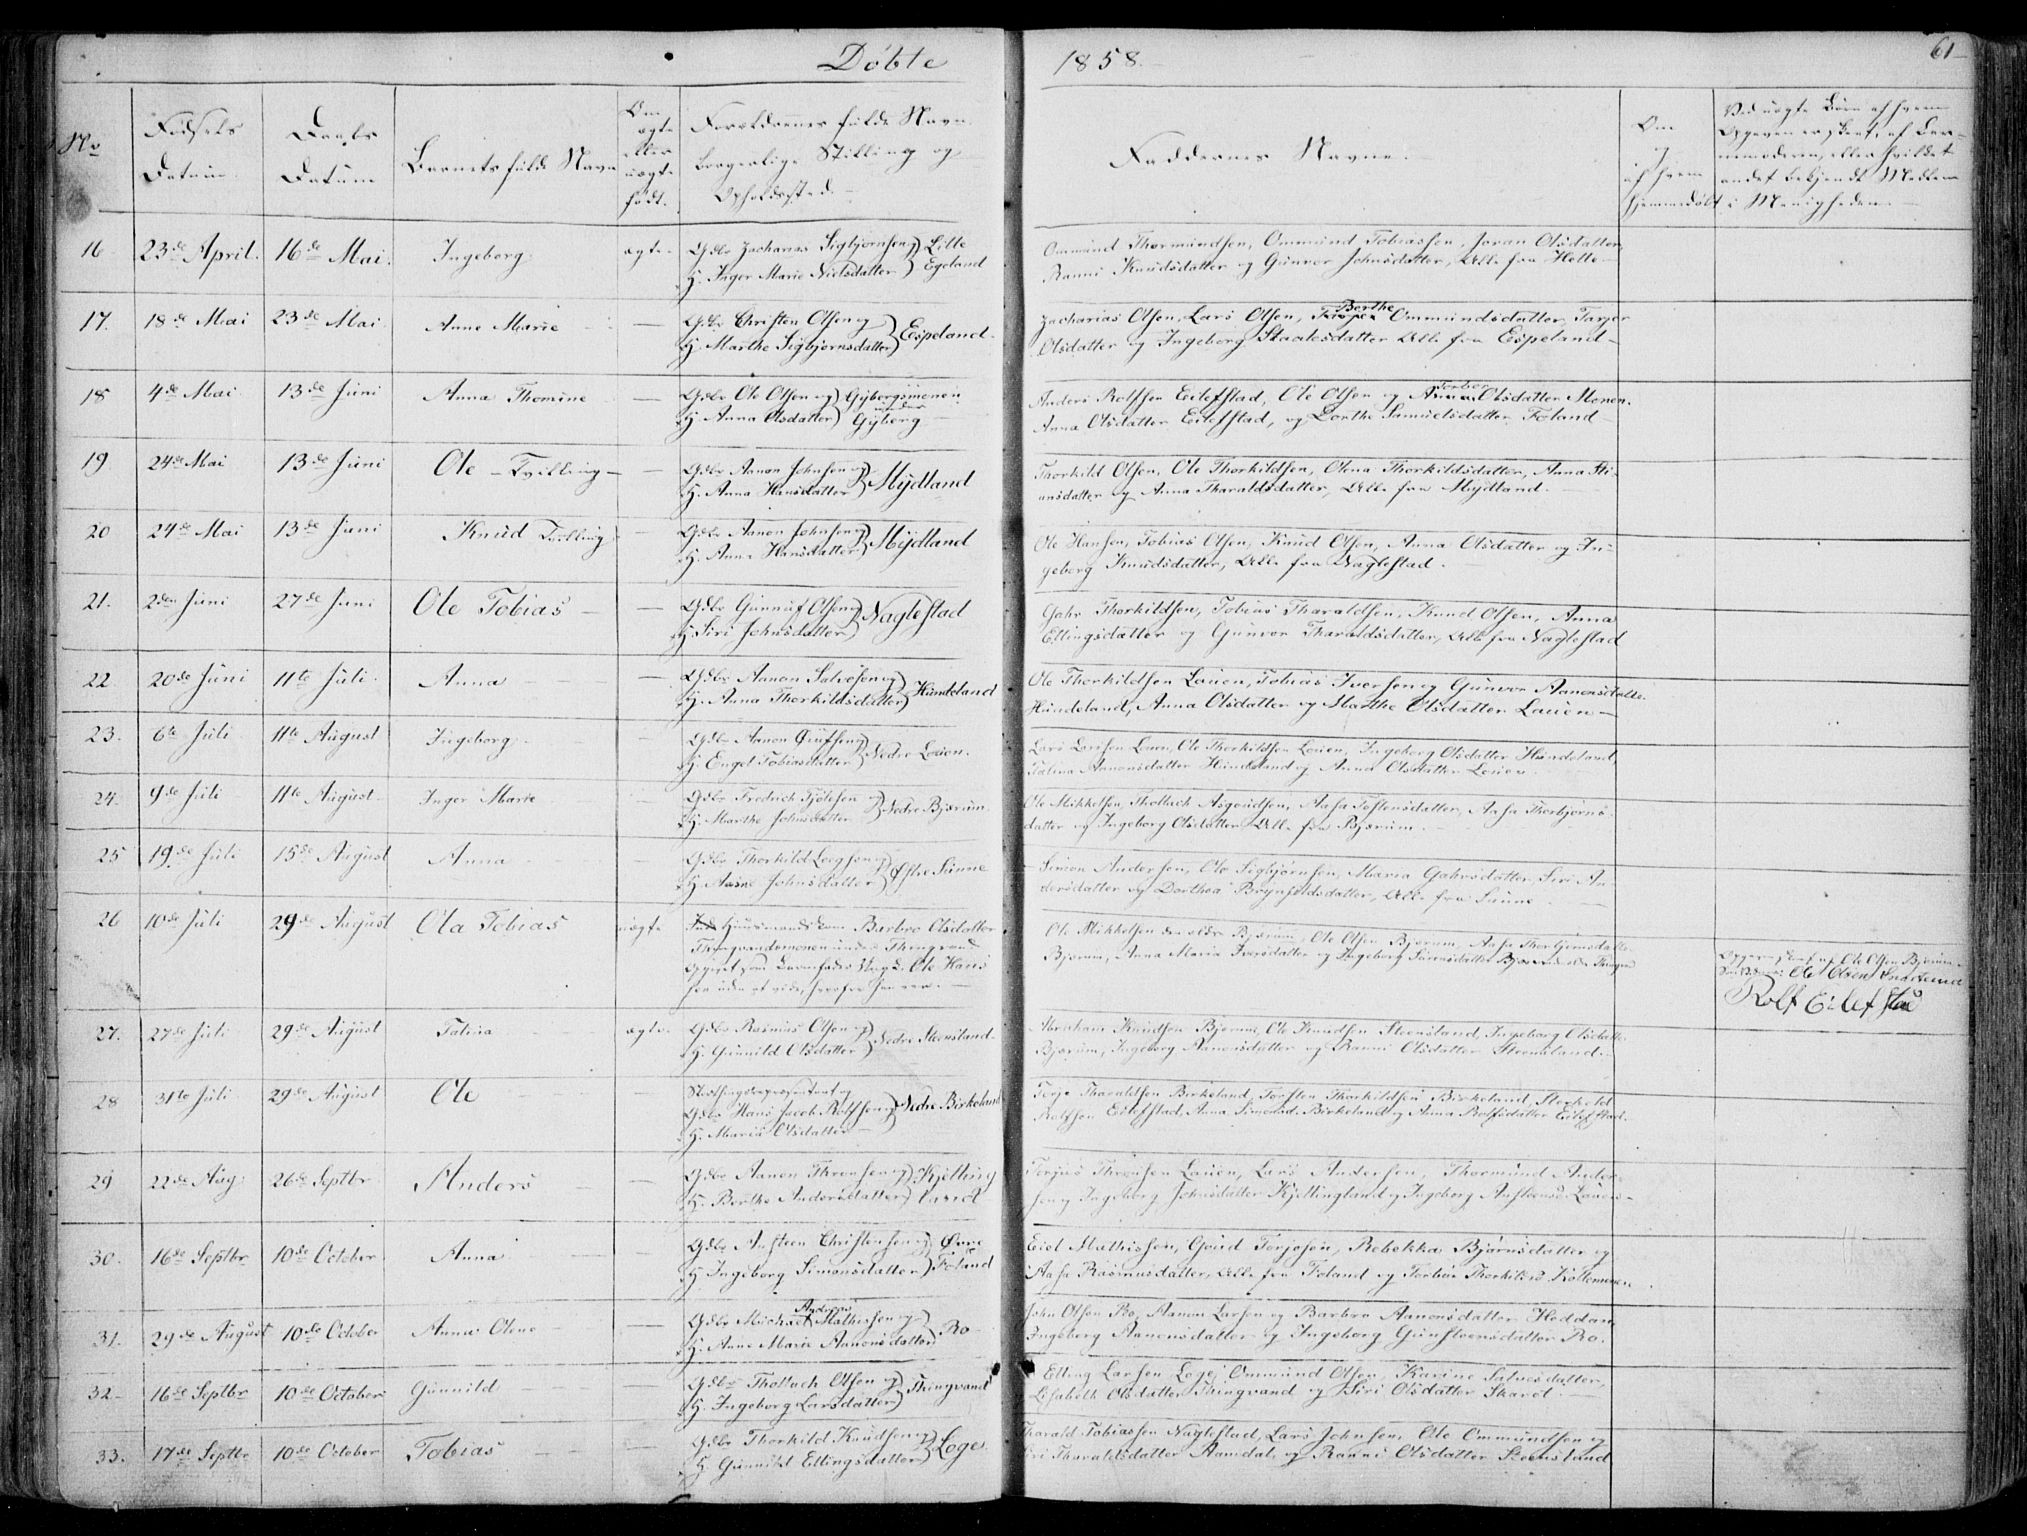 Døbte 1858. 61
No
Fødsels Datum.
Daabs Datum
Barnets fulde Navn
Om ægte eller uægte født.
Forældrenes fulde Navn borgerlige Stilling og Opholdssted.
Faddernes Navne.
Om og af hvem hjemmedøbt
16. 23de April. 16de Mai. Ingeborg. ægte Gdbr Zacharias Sigbjørnsen og Lille
H. Inger Marie Nielsdatter Egeland
Ommund Thormundsen, Ommund Tobiassen, Joran Olsdatter,
Ranni Knudsdatter og Gunvor Johnsdatter, Alle fra Helle
17. 18de Mai 23de Mai. Anne Marie — Gdbr Christen Olsen og
H. Marthe Sigbjørnsdatter Espeland.
Berthe
Zacharias Olsen, Lars Olsen, Ommundsdatter, Tarjer
Olsdatter og Ingeborg Staalesdatter Alle fra Espeland
18 4de Mai 13de Juni Anna Thomine — Gdbr Ole Olsen og Gyborgsmonen
H. Anna Olsdatter under Gyberg
Torbor
Anders Rolfsen Eilefstad, Ole Olsen og Olsdatter Monen.
Anna Olsdatter Eilefstad, og Dorthe Samuelsdatter Foland
19 24de Mai 13de Juni Ole – Tvilling — Gdbr Aanon Johnsen og
H. Anna Hansdatter Mydland
Thorkild Olsen, Ole Thorkildsen, Olena Thorkildsdatter, Anna Sti-
ansdatter og Anna Tharaldsdatter, Alle fra Mydland.
20 24de Mai 13de Juni Knud Tvilling — Gdbr Aanon Johnsen og
H. Anna Hansdatter Mydland
Ole Hansen, Tobias Olsen, Knud Olsen, Anna Olsdatter og In-
geborg Knudsdatter, Alle fra Naglestad.
21. 2den Juni 27de Juni Ole Tobias — Gdbr Gunnuf Olsen og
H. Siri Johnsdatter Naglestad
Gahr Thorkildsen, Tobias Tharaldsen, Knud Olsen, Anna
Ellingsdatter og Gunvor Tharaldsdatter, Alle fra Naglestad
22 20de Juni 11te Juli. Anna — Gdbr Aanon Salvesen og
H. Anna Thorkildsdatter Hundeland
Ole Thorkildsen Lauen, Tobias Iversen og Gunvor Aanonsdatter
Hundeland, Anna Olsdatter og Marthe Olsdatter Lauen
23. 6te Juli 11te August Ingeborg. Gdbr Aanon
H. Engel Tobiasdatter Nedre Lauen.
Lars Larsen Lauen, Ole Thorkildsen Lauen, Ingeborg Olsdatter Hundeland,
Talina Aanonsdatter Hundeland og Anna Olsdatter Lauen
24. 9de Juli 11te August Inger Marie Gdbr Fredrich
H. Marthe Johnsdatter Nedre Bjærum
Ole Mikkelsen, Thollach Asgoudsen, Aasa Tostensdatter, Aasa Thorbjørns-
datter og Ingeborg Olsdatter Alle fra Bjærum.
25 19de Juli 15de August Anna Gdbr Thorkild
H. Johnsdatter Østre Sunne
Simon Andersen, Ole Sigbjørnsen, Maria Gahrsdatter, Siri An-
dersdatter og Dorthea Brynildsdatter, Alle fra Sunne
26 10de Juli 29de August Ola Tobias uægte Huusmandskone Barbro Olsdatter
Thingvandsmonen under Thingvand
Opgivet som Barnefader Ungk. Ole Hans-
sen uden at vide, hvorfra han var.
Ole Mikkelsen den ældre Bjærum, Ole Olsen Bjærum, Aasa Thorbjørnsdatter
Bjærum, Anna Maria Iversdatter og Ingeborg
Ole Olsen Bjærum.
Ole Olsen
Rolf Eilefstad
27. 27de Juli 29de August Talina ægte Gdbr Rasmus Olsen og
H. Gunnild Olsdatter Nedre Steensland.
Abraham Knudsen Bjærum, Ole Knudsen Steensland, Ingeborg Olsdatter
Bjærum, Ingeborg Aanonsdatter og Ranni Olsdatter Steensland
28 31te Juli 29de August Ole Storthingsrepræsentant og
Gdbr Hans Jacob Rolfsen og
H. Maria Olsdatter Nedre Birkeland
Terje Tharaldsen Birkeland, Torsten Thorkildsen Birkeland,
Rolfsen Eilefstad, Anna Simonsd. Birkeland og Anna Rolfsdatter Eilefstad.
29 22de Aug. 26de Septbr Anders — Gdbr Aanen Thronsen og Kjelling
H. Berthe Andersdatter land
Terjus Thronsen Lauen, Lars Andersen, Thormund Ander-
sen og Ingeborg Johnsdatter Kjellingland og Ingeborg
30. 16de Septbr 10de October Anna Gdbr Austeen Christensen og Øvre
H. Ingeborg Simonsdatter Foland
Eiel Mathissen, Goud Torjesen, Rebekka Bjørnsdatter og
Aasa Rasmusdatter, Alle fra Foland og Torbor Thorkildsd
31. 29de August 10de October Anna Olene — Gdbr Michael Andreas Mathissen og
H. Anne Marie Aanonsdatter Ro
John Olsen Ro, Aanon Larsen og Barbro Aanonsdatter Heddan
Ingeborg Aanensdatter og Ingeborg Gunsteensdatter Ro.
32. 16de Septbr 10de October Gunnild Gdbr Thollach Olsen og
H. Ingeborg Larsdatter Thingvand
Elling Larsen Loge, Ommund Olsen, Karine Salvesdatter,
Lisabeth Olsdatter Thingvand og Siri Olsdatter Skaret.
33. 17de Septbr 10de October Tobias Gdbr Thorkild Knudsen og
H. Gunnild Ellingsdatter Loge
Tharald Tobiassen Naglestad, Lars Johnsen, Ole Ommundsen og
Siri Tharaldsdatter Aamdal, og Ranni Olsdatter Steensland